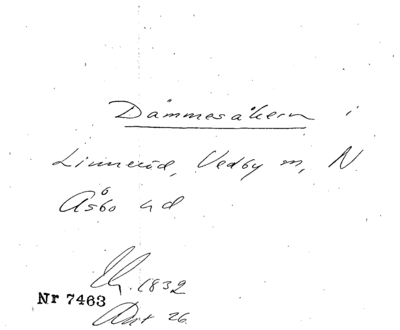 Dämmesåkern i
Linneröd, Vedby sn, N
Åsbo hd
1832
Nr 7463
Akt 26